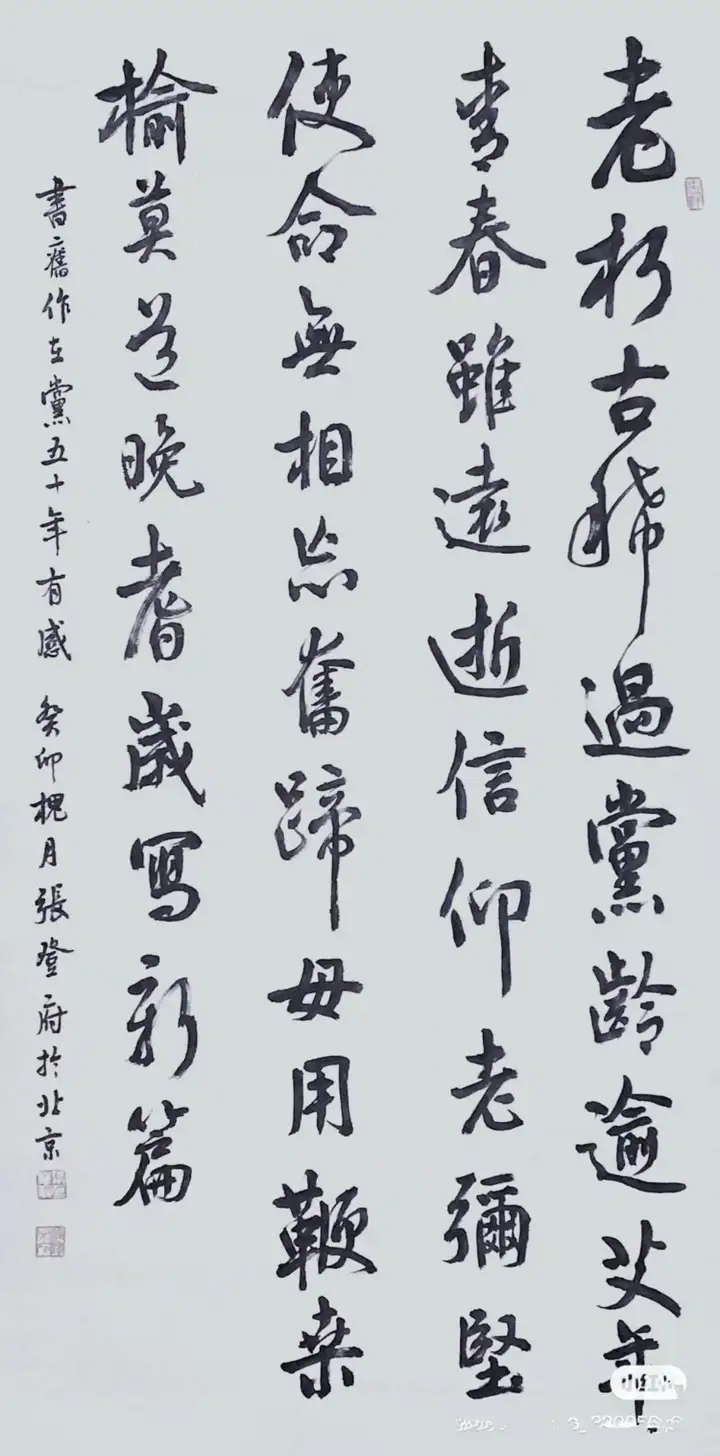 老朽古稀過黨齡逾艾年
青春雖遠逝信仰老彌堅
使命無相忘奮蹄毋用鞭桑
榆莫道晚耆歲寫新篇
書舊作在黨五十年有感 癸卯槐月張登府於北京
小红书